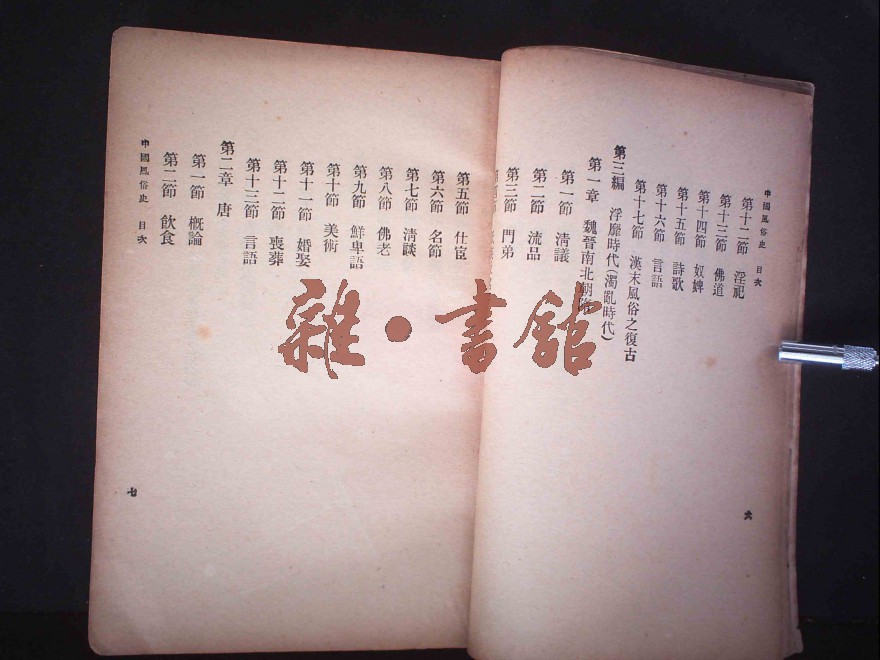 中國風俗史 目次
第十二節 淫祀
第十三節 佛道
第十四節 奴婢
第十五節 詩歌
第十六節 言語
第十七節 漢末風俗之復古
第三編 浮靡時代(濁亂時代)
第一章 魏晉南北朝隋
第一節 清議
第二節 流品
第三節 門弟
六
第五節 仕宦
第六節 名節
第七節 清談
第八節 佛老
第九節 鮮卑語
第十節 美術
第十一節 婚娶
第十二節 喪葬
第十三節 言語
第二章 唐
第一節 概論
第二節 飲食
中國風俗史 目次
七
雜·書館